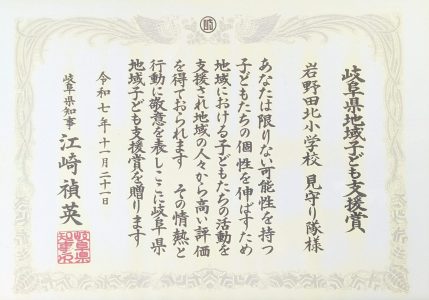 岐阜県地域子ども支援賞
岩野田北小学校 見守り隊様
あなたは限りない可能性を持つ
子どもたちの個性を伸ばすため
地域における子どもたちの活動を
支援され地域の人々から高い評価
を得ておられます その情熱と
行動に敬意を表しここに岐阜県
地域子ども支援賞を贈ります
令和七年十一月二十一日
岐阜県知事 江崎禎英
岐阜県
知事之印